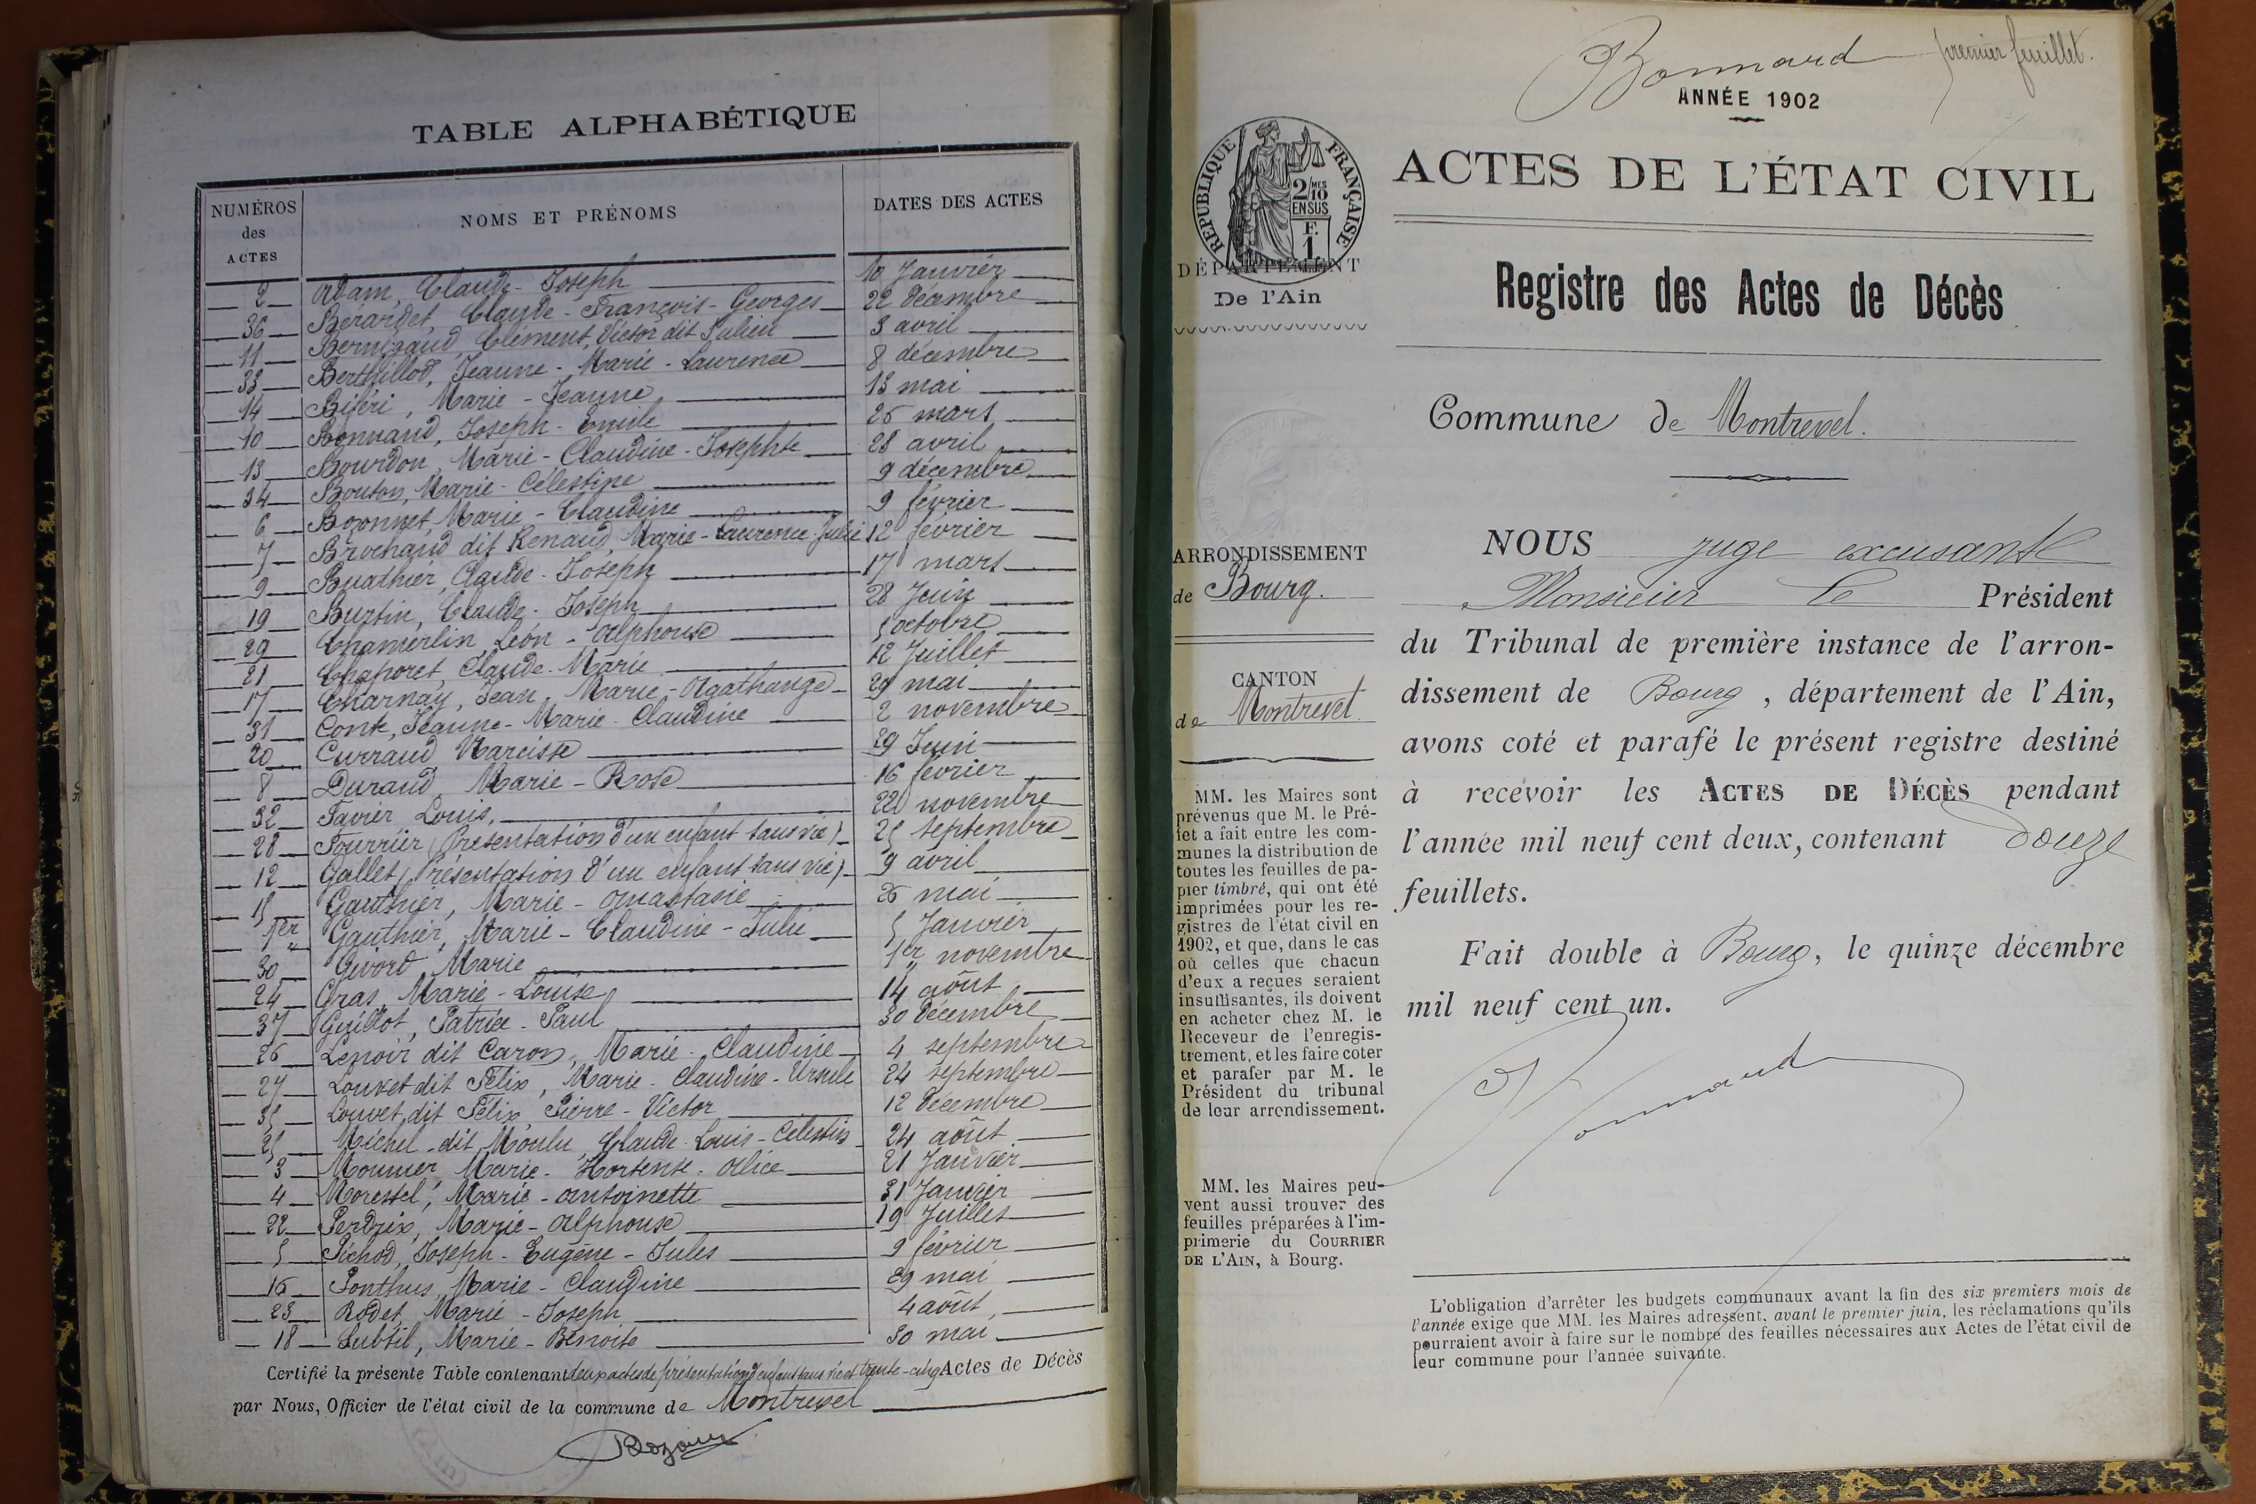 TABLE ALPHABÉTIQUE
NUMÉROS des ACTES NOMS ET PRÉNOMS DATES DES ACTES
2 Adam, Claude-Joseph 10 Janvier
36 Berardet, Claude-François-Georges 22 décembre
11 Bernigaud, Clément, Victor dit Julien 3 avril
33 Berthillod, Jeanne-Marie-Laurence 8 décembre
14 Biféri, Marie-Jeanne 13 mai
10 Bonnand, Joseph-Emile 26 mars
13 Bourdon, Marie-Claudine-Josephte 28 avril
34 Bouton, Marie-Célestine 9 décembre
6 Bozonnet, Marie-Claudine 9 février
7 Brochand dit Renaud, Marie-Laurence-Julie 12 février
9 Buathier, Claude-Joseph 17 mars
19 Burtin, Claude-Joseph 28 Juin
29 Chamerlin, Léon-Alphonse 5 octobre
21 Chaporet, Claude-Marie 12 Juillet
17 Charnay, Jean, Marie-Agathange 29 mai
31 Conte, Jeanne-Marie-Claudine 2 novembre
20 Curraud Narcisse 29 Juin
8 Durand, Marie-Rose 16 février
32 Favier Louis, 22 novembre
28 Fourrier (Présentation d'un enfant sans vie) 25 septembre
12 Gallet (Présentation d'un enfant sans vie) 9 avril
15 Gauthier, Marie-Anastasie 26 mai
1er Gauthier, Marie-Claudine-Julie 5 Janvier
30 Givord Marie 1er novembre
24 Gras, Marie-Louise 14 août
37 Guillot, Patrice-Paul 30 décembre
26 Lenoir dit Caron, Marie-Claudine 4 septembre
27 Louvet dit Félix, Marie-Claudine-Ursule 24 septembre
35 Louvet dit Félix, Pierre-Victor 12 décembre
25 Michel dit Moulu, Claude-Louis-Célestin 24 août
3 Mounier, Marie-Hortense-Alice 21 Janvier
4 Morestel, Marie-Antoinette 31 Janvier
22 Perdrix, Marie-Alphonse 19 Juillet
5 Pichod, Joseph-Eugène-Jules 9 février
16 Ponthus, Marie-Claudine 29 mai
23 Rodet, Marie-Joseph 4 août
18 Subtil, Marie-Benoite 30 mai
Certifié la présente Table contenant deux actes de présentation d'enfant sans vie et trente-cinq Actes de Décès
par Nous, Officier de l'état civil de la commune de Montrevel
Bonnard premier feuillet.
ANNÉE 1902
RÉPUBLIQUE FRANÇAISE
2 MES 10 EN SUS
F. 1
DÉPARTEMENT
De l'Ain
ACTES DE L'ÉTAT CIVIL
Registre des Actes de Décès
Commune de Montrevel.
ARRONDISSEMENT
de Bourg.
CANTON
de Montrevel
MM. les Maires sont
prévenus que M. le Pré-
fet a fait entre les com-
munes la distribution de
toutes les feuilles de pa-
pier timbré, qui ont été
imprimées pour les re-
gistres de l'état civil en
1902, et que, dans le cas
où celles que chacun
d'eux a reçues seraient
insuffisantes, ils doivent
en acheter chez M. le
Receveur de l'enregis-
trement, et les faire coter
et parafer par M. le
Président du tribunal
de leur arrondissement.
MM. les Maires peu-
vent aussi trouver des
feuilles préparées à l'im-
primerie du COURRIER
DE L'AIN, à Bourg.
NOUS juge excusant
Monsieur le Président
du Tribunal de première instance de l'arron-
dissement de Bourg, département de l'Ain,
avons coté et parafé le présent registre destiné
à recevoir les ACTES DE DÉCÈS pendant
l'année mil neuf cent deux, contenant douze
feuillets.
Fait double à Bourg, le quinze décembre
mil neuf cent un.
L'obligation d'arrêter les budgets communaux avant la fin des six premiers mois de
l'année exige que MM. les Maires adressent, avant le premier juin, les réclamations qu'ils
pourraient avoir à faire sur le nombre des feuilles nécessaires aux Actes de l'état civil de
leur commune pour l'année suivante.